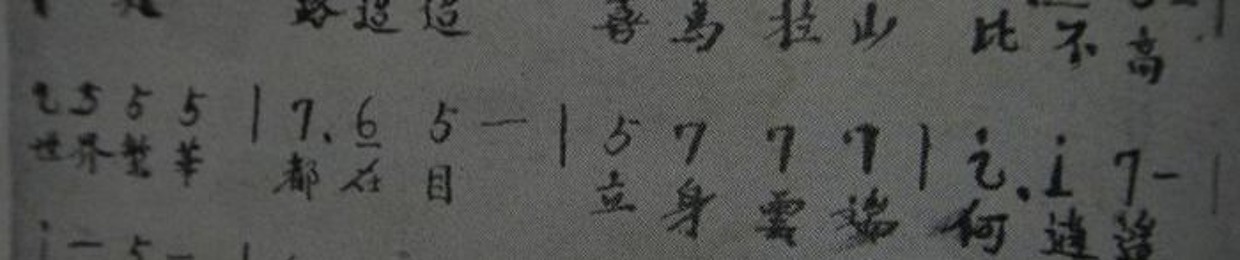 路迢迢 喜馬拉山 比不高
2 5 5 5 | 7. 6 5 — | 5 7 7 7 | i. i 7 - |
世界繁華 都在目 立身雲端 何逍遙
i — 5 —